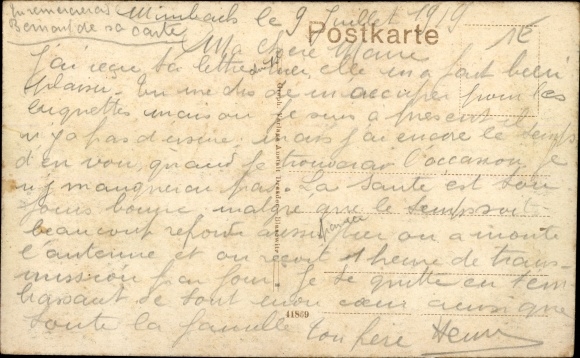 tu remercieras
Bernard de sa carte
Mimbach le 9 Juillet 1919
Postkarte
Ma chère Marie
J'ai reçu ta lettre hier elle m'a fait bien
plaisir. Tu me dis de m'occuper pour les
étiquettes mais où je suis à présent il
n'y a pas d'usine, mais j'ai encore le temps
d'en voir, quand je trouverai l'occasion je
n'y manquerai pas. La santé est tou
jours bonne malgré que le temps soit
beaucoup refroidi aussi, hier on a monté
l'antenne et on reçoit 1 heure de trans-
mission par jour. Je te quitte en t'em
brassant de tout mon cœur ainsi que
toute la famille ton père Henri
41869